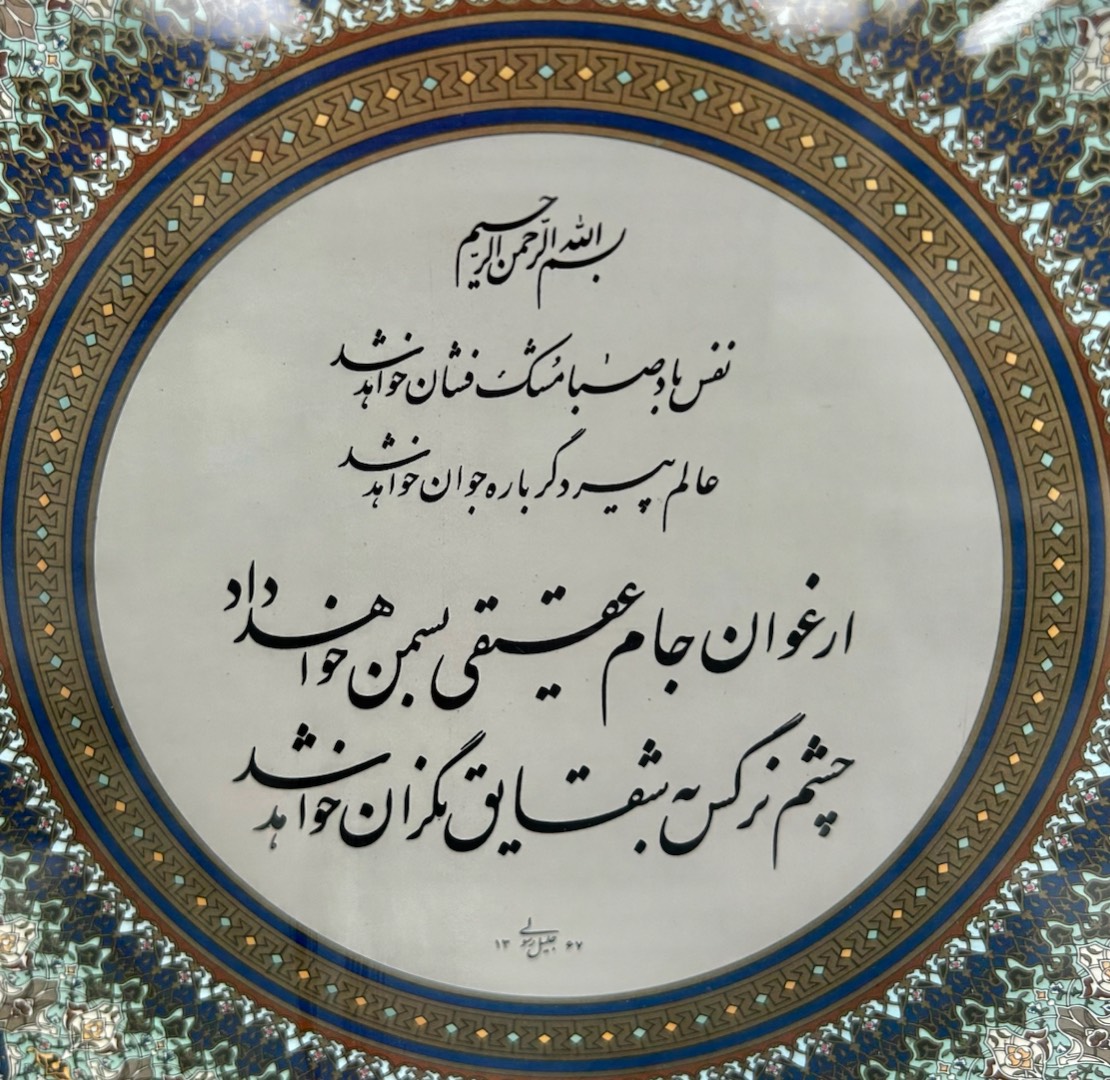 بسم الله الرحمن الرحیم
نفس باد صبا مُشک فشان خواهد شد
عالم پیر دگر باره جوان خواهد شد
ارغوان جام عقیقی بسمن خواهد داد
چشم نرگس به شقایق نگران خواهد شد
۱۳ جلیل رسولی ۶۷